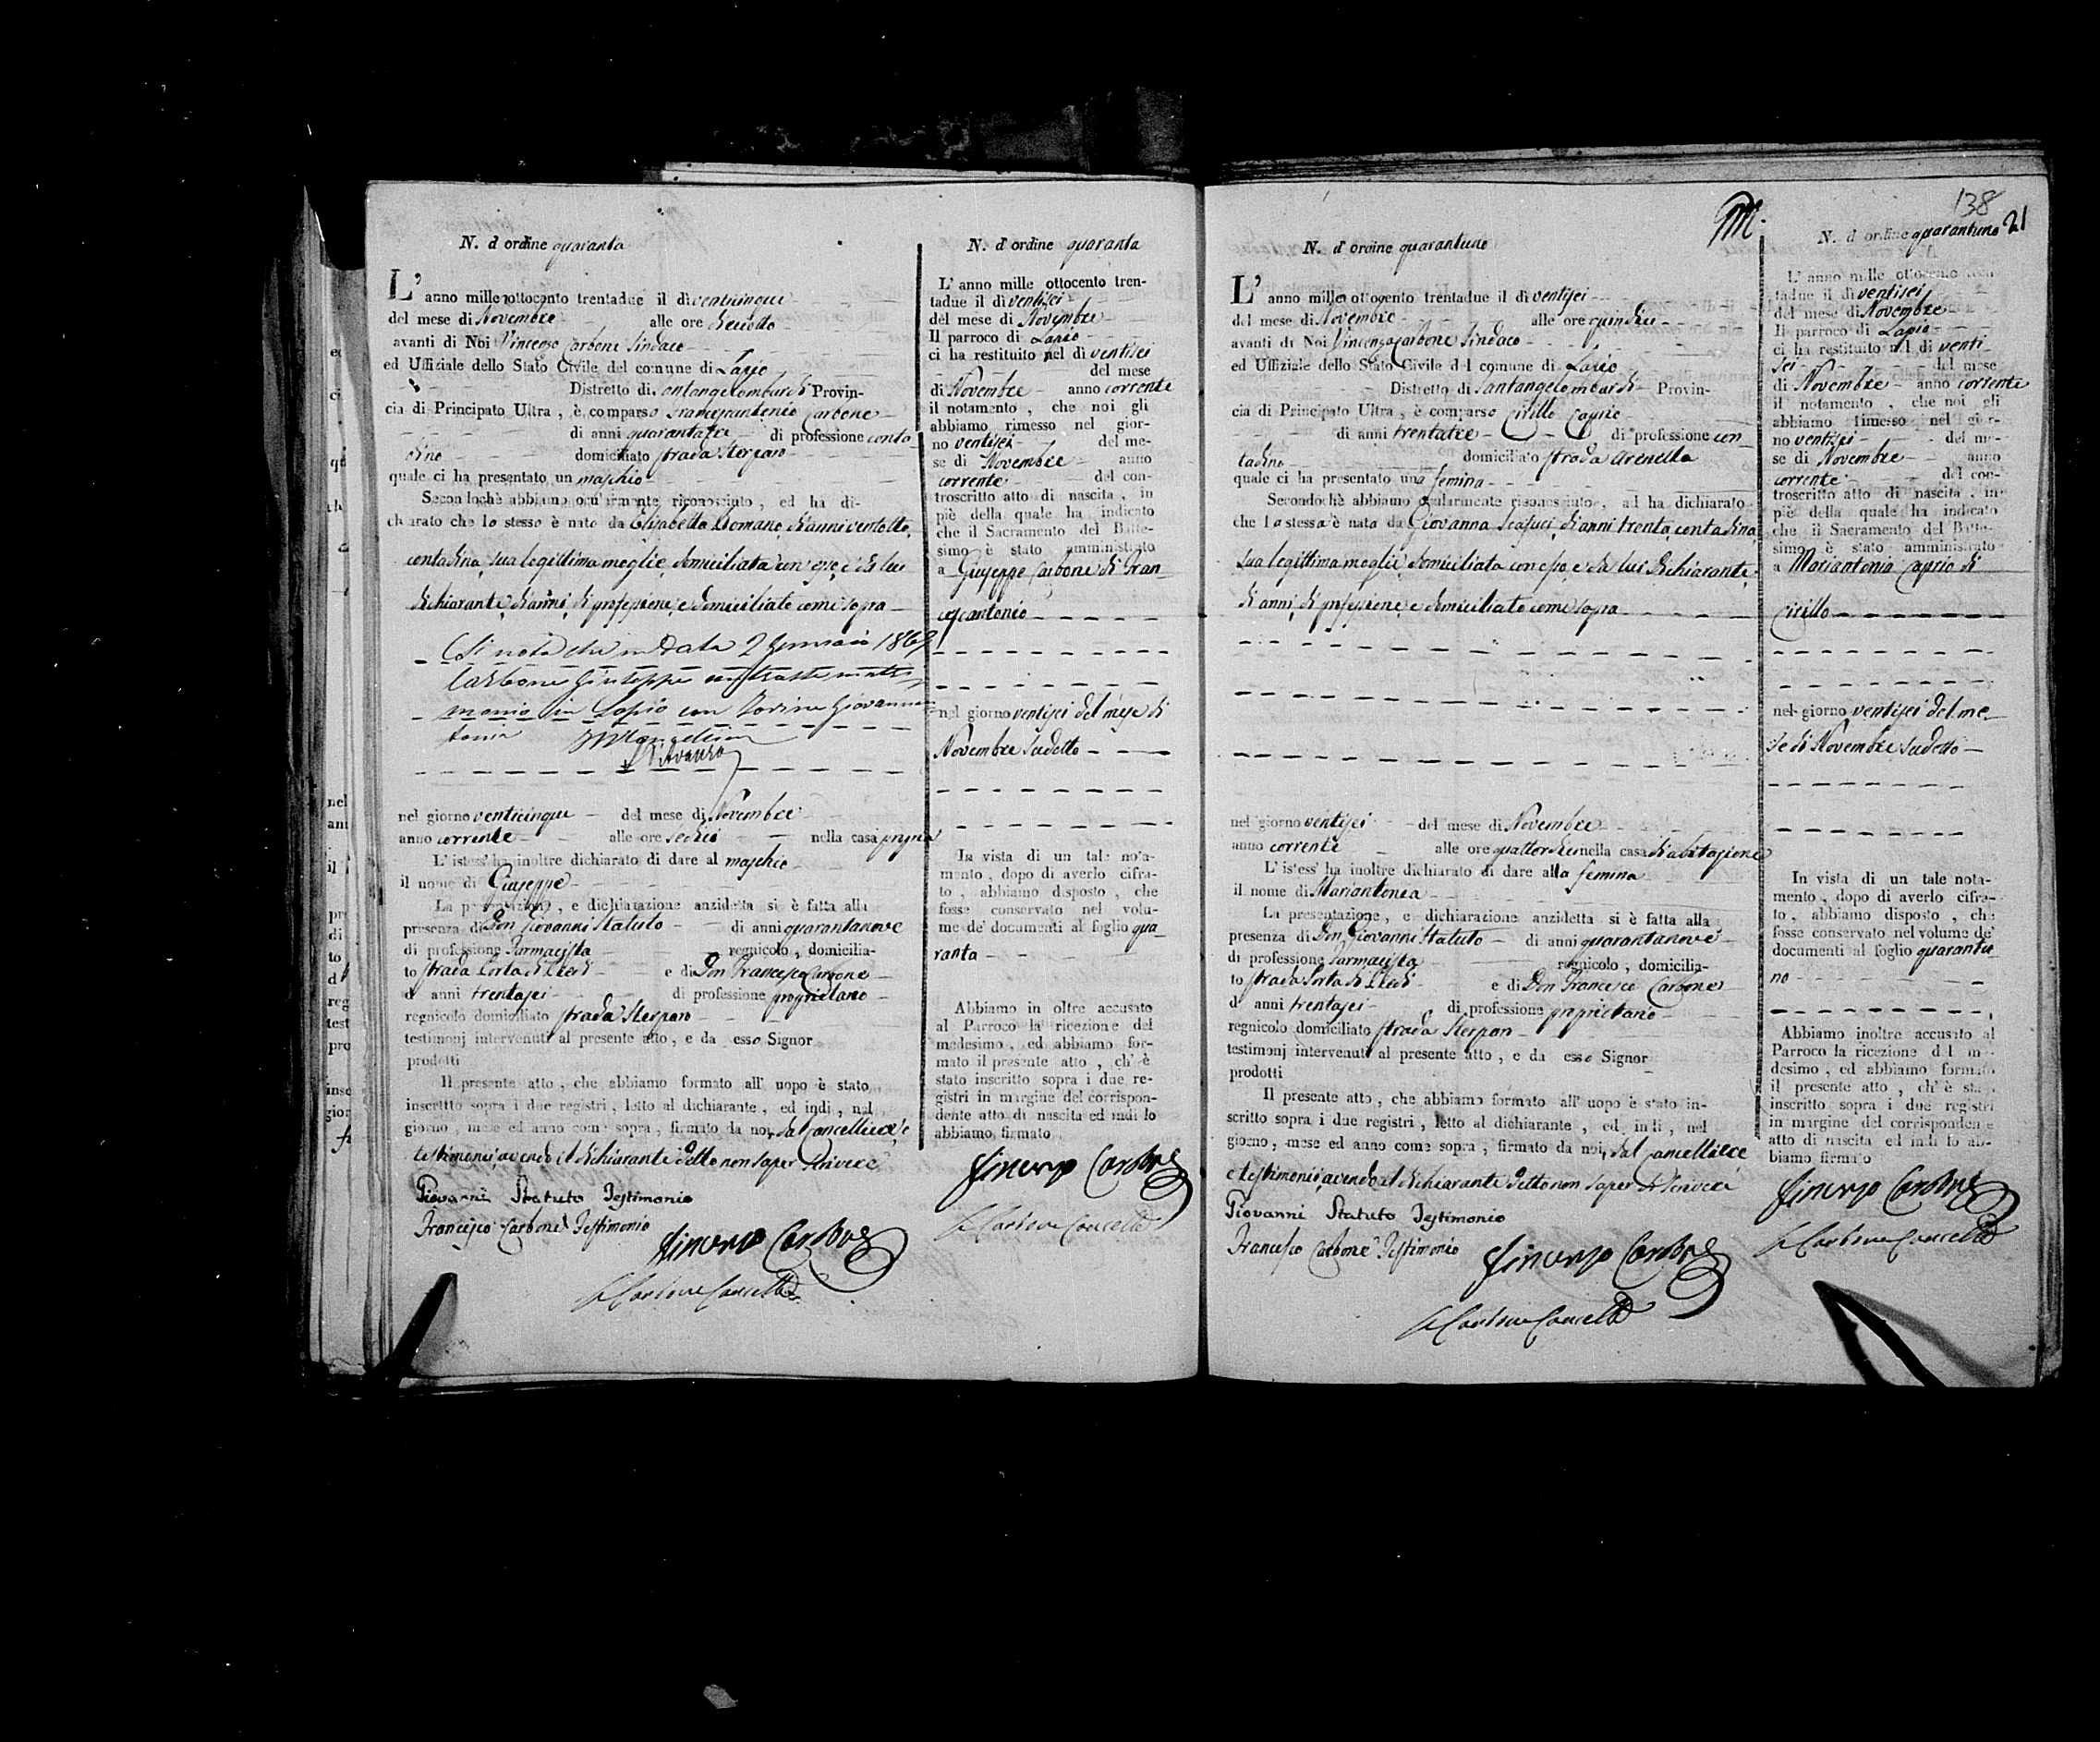 N. d'ordine quaranta
L'anno mille ottocento trentadue il dì venticinque
del mese di Novembre alle ore dieciotto
avanti di Noi Vincenzo Carbone Sindaco
ed Uffiziale dello Stato Civile del comune di Lapio
Distretto di Santangelombardi Provin-
cia di Principato Ultra, è comparso Francescantonio Carbone
di anni quarantatre di professione conta
dino domiciliato strada Sterparo
quale ci ha presentato un maschio
Secondochè abbiamo ocularmente riconosciuto, ed ha di-
chiarato che lo stesso è nato da Elisabetta Romano, di anni ventotto,
contadina, sua legittima moglie, domiciliata con esso, e da lui
dichiarante, di anni, di professione, e domiciliato come sopra
Si nota che in data 2 Gennaio
Carbone Giuseppe contrasse matri
monio in Lapio con Giovannan
tonia
nel giorno venticinque del mese di Novembre
anno corrente alle ore sedici nella casa propria
L'istess' ha inoltre dichiarato di dare al maschio
il nome di Giuseppe
La presentazione, e dichiarazione anzidetta si è fatta alla
presenza di Don Giovanni Statuto di anni quarantanove
di professione Farmacista regnicolo, domicilia-
to strada Porta di e di Don Francesco Carbone
d' anni trentasei di professione proprietario
regnicolo domiciliato strada Sterparo
testimonj intervenuti al presente atto, e da esso Signor
prodotti
Il presente atto, che abbiamo formato all' uopo è stato
inscritto sopra i due registri, letto al dichiarante, ed indi, nel
giorno, mese ed anno come sopra, firmato da noi, dal Cancelliere, e
testimoni, avendo il dichiarante detto non saper scrivere
Giovanni Statuto Testimonio
Francesco Carbone Testimonio
Vincenzo Carbone
Carbone Cancell
N. d'ordine quaranta
L'anno mille ottocento tren-
tadue il dì ventisei
del mese di Novembre
Il parroco di Lapio
ci ha restituito nel dì ventisei
del mese
di Novembre anno corrente
il notamento, che noi gli
abbiamo rimesso nel gior-
no ventisei del me-
se di Novembre anno
corrente del con-
troscritto atto di nascita, in
piè della quale ha indicato
che il Sacramento del Batte-
simo è stato amministrato
a Giuseppe Carbone di Fran
cescantonio
nel giorno ventisei del mese di
Novembre sudetto
In vista di un tale nota-
mento, dopo di averlo cifra-
to, abbiamo disposto, che
fosse conservato nel volu-
me de' documenti al foglio qua
ranta
Abbiamo in oltre accusato
al Parroco la ricezione del
medesimo, ed abbiamo for-
mato il presente atto, ch' è
stato inscritto sopra i due re-
gistri in margine del corrispon-
dente atto di nascita ed indi lo
abbiamo firmato
Vincenzo Carbone
Carbone Cancell
138
21
N. d'ordine quarantuno
L'anno mille ottocento trentadue il dì ventisei
del mese di Novembre alle ore quindici
avanti di Noi Vincenzo Carbone Sindaco
ed Uffiziale dello Stato Civile del comune di Lapio
Distretto di Santangelombardi Provin-
cia di Principato Ultra, è comparso Cirillo Caprio
di anni trentatre di professione con
tadino domiciliato strada Arenella
quale ci ha presentato una femina
Secondochè abbiamo ocularmente riconosciuto, ed ha dichiarato
che la stessa è nata da Giovanna Scafuci, di anni trenta, contadina
sua legittima moglie, domiciliata con esso, e da lui dichiarante,
di anni, di professione, e domiciliato come sopra
nel giorno ventisei del mese di Novembre
anno corrente alle ore quattordici nella casa di abitazione
L'istess' ha inoltre dichiarato di dare alla femina
il nome di Mariantonia
La presentazione, e dichiarazione anzidetta si è fatta alla
presenza di Don Giovanni Statuto di anni quarantanove
di professione Farmacista regnicolo, domicilia-
to strada Porta di e di Don Francesco Carbone
d' anni trentasei di professione proprietario
regnicolo domiciliato strada Sterparo
testimonj intervenuti al presente atto, e da esso Signor
prodotti
Il presente atto, che abbiamo formato all' uopo è stato in-
scritto sopra i due registri, letto al dichiarante, ed indi, nel
giorno, mese ed anno come sopra, firmato da noi, dal Cancelliere
e testimoni, avendo il dichiarante detto non saper scrivere
Giovanni Statuto Testimonio
Francesco Carbone Testimonio
Vincenzo Carbone
Carbone Cancell
N. d'ordine quarantuno
L'anno mille ottocento tren
tadue il dì ventisei
del mese di Novembre
Il parroco di Lapio
ci ha restituito nel dì venti-
sei del mese
di Novembre anno corrente
il notamento, che noi gli
abbiamo rimesso nel gior-
no ventisei del me-
se di Novembre anno
corrente del con-
troscritto atto di nascita, in
piè della quale ha indicato
che il Sacramento del Batte-
simo è stato amministrato
a Mariantonia Caprio di
Cirillo
nel giorno ventisei del me
se di Novembre sudetto
In vista di un tale nota-
mento, dopo di averlo cifra-
to, abbiamo disposto, che
fosse conservato nel volume de'
documenti al foglio quarantu
no
Abbiamo inoltre accusato al
Parroco la ricezione del me-
desimo, ed abbiamo formato
il presente atto, ch' è stato
inscritto sopra i due registri
in margine del corrispondente
atto di nascita ed indi lo ab-
biamo firmato
Vincenzo Carbone
Carbone Cancell